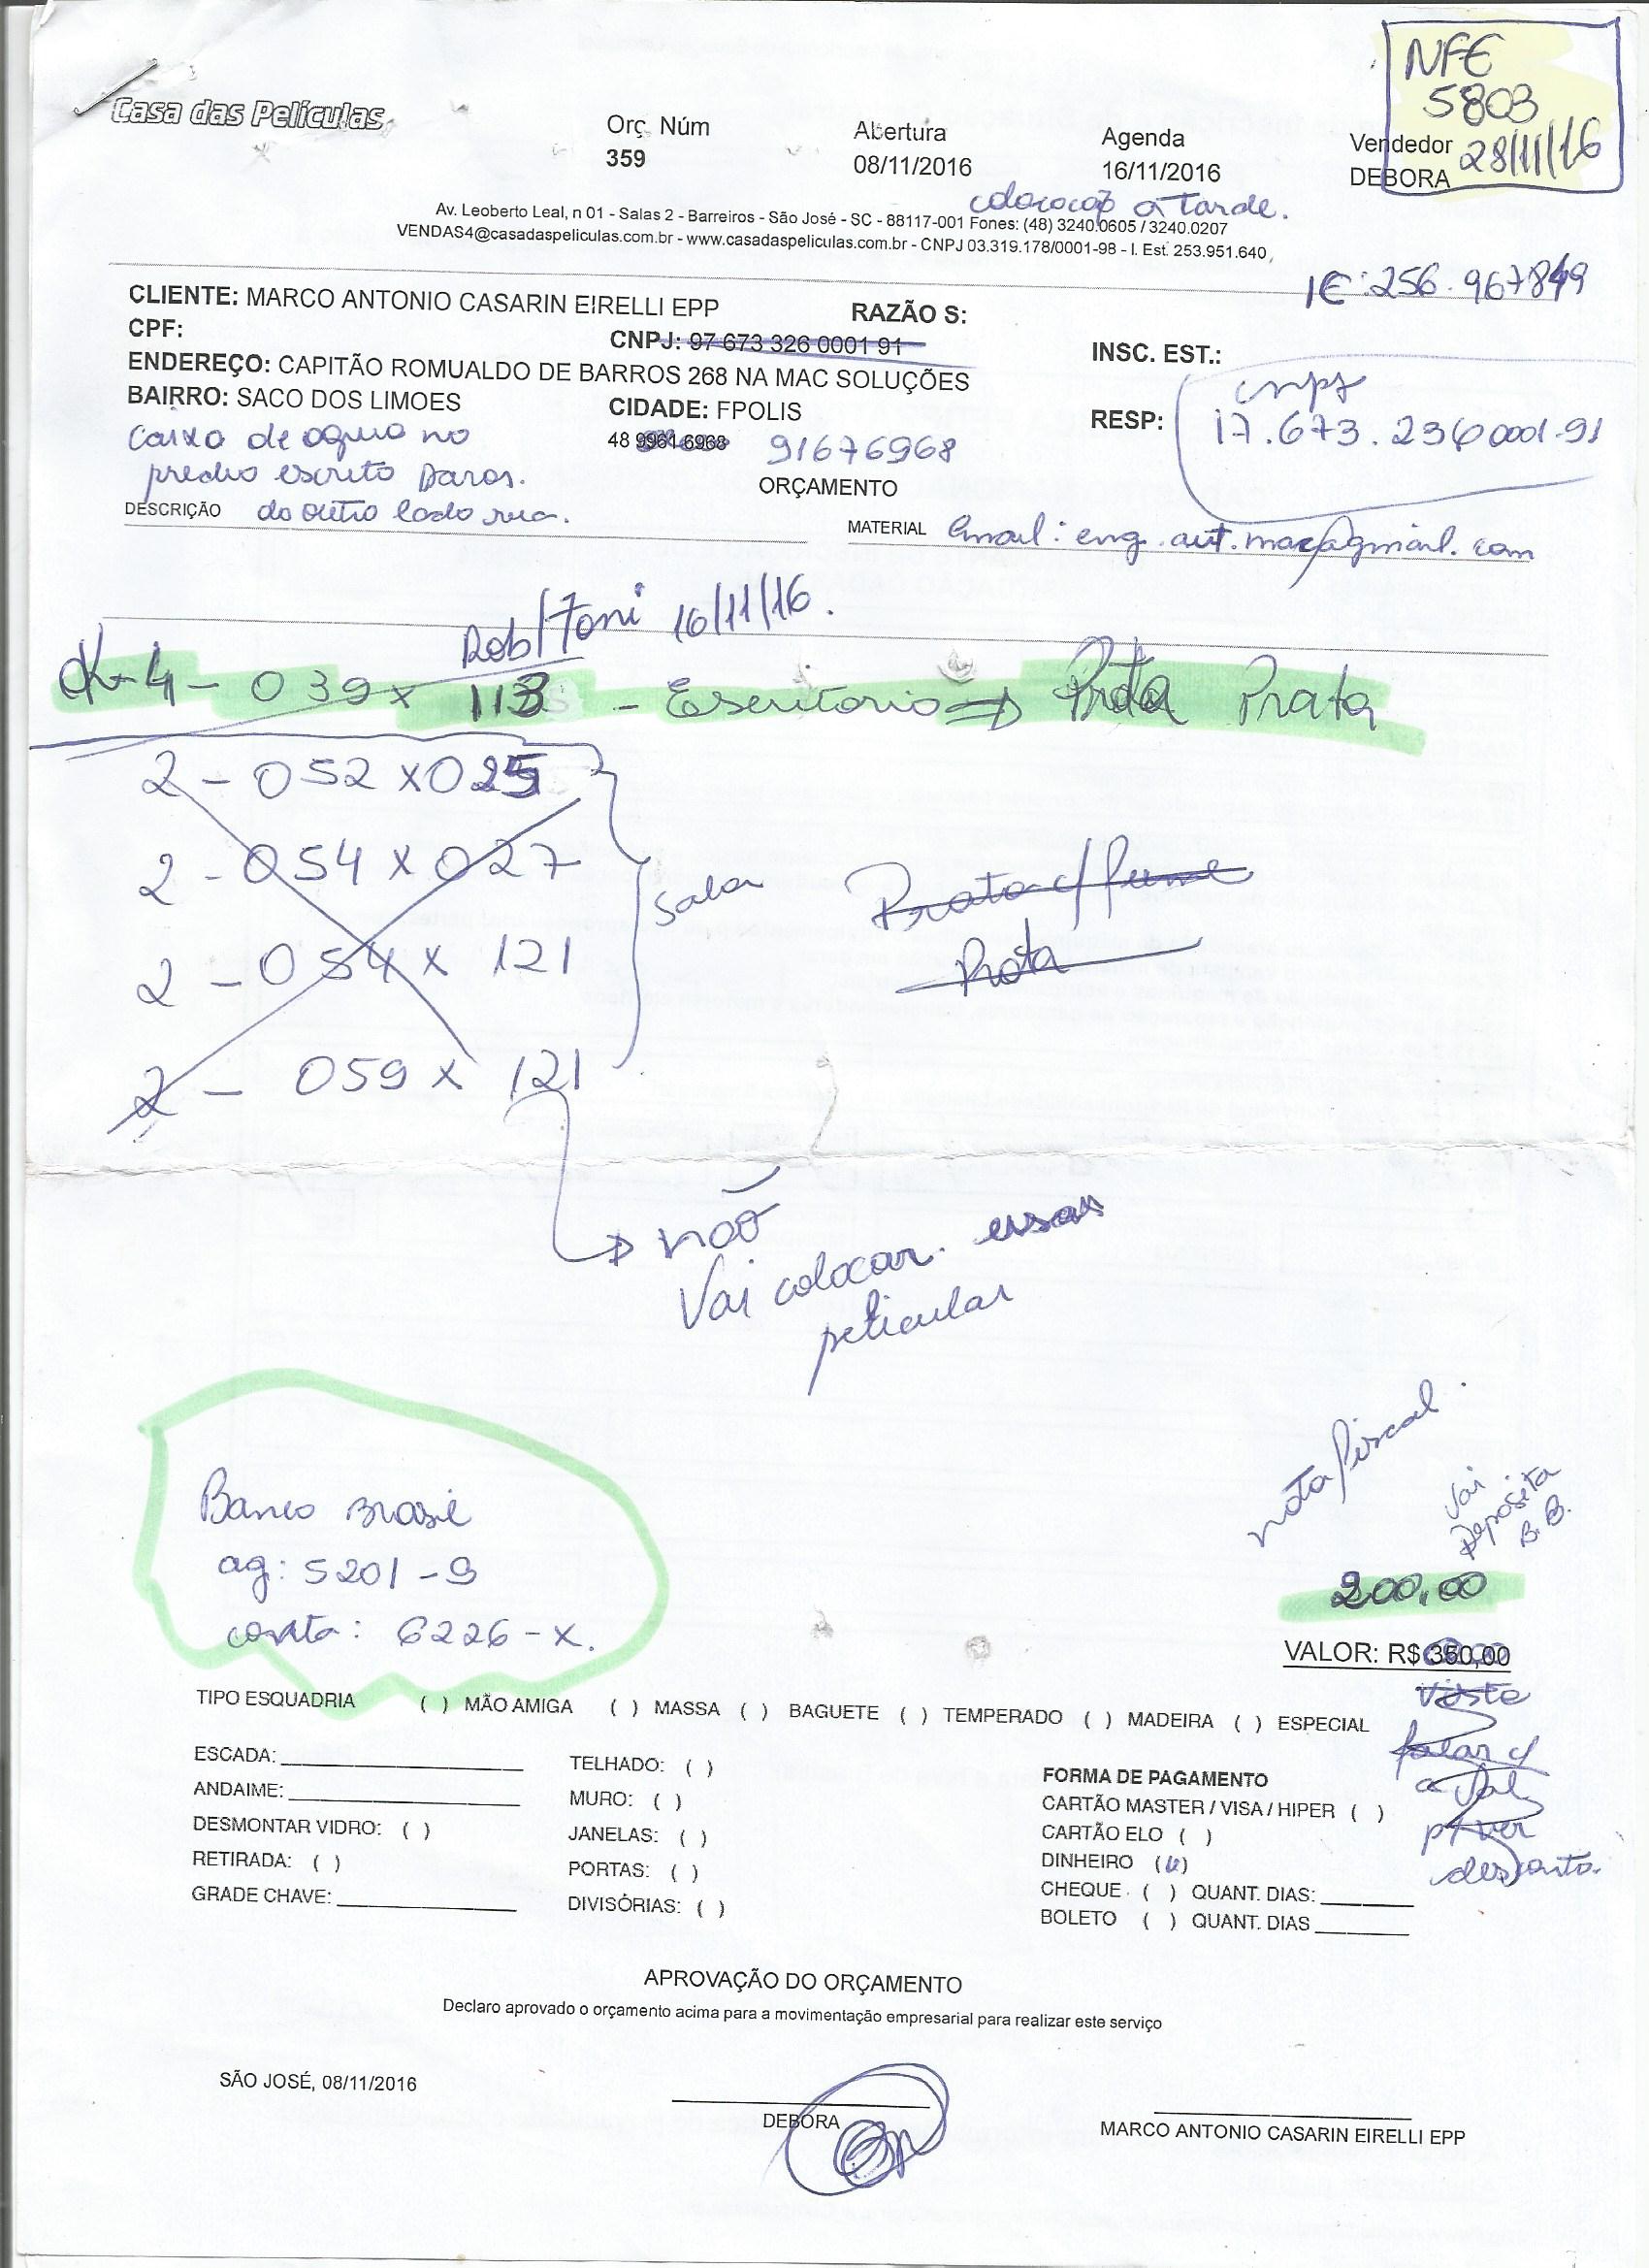 NFE
5803
28/11/16
Casa das Películas
Orç Núm
359
Abertura
08/11/2016
Agenda
16/11/2016
Vendedor
DEBORA
colocação a tarde.
Av. Leoberto Leal, n 01 - Salas 2 - Barreiros - São José - SC - 88117-001 Fones: (48) 3240.0605 / 3240.0207
VENDAS4@casadaspeliculas.com.br - www.casadaspeliculas.com.br - CNPJ 03.319.178/0001-98 - I. Est. 253.951.640
IE: 256.967849
CLIENTE: MARCO ANTONIO CASARIN EIRELLI EPP
RAZÃO S:
CPF:
CNPJ: 97 673 326 0001 91
INSC. EST.:
ENDEREÇO: CAPITÃO ROMUALDO DE BARROS 268 NA MAC SOLUÇÕES
BAIRRO: SACO DOS LIMOES
CIDADE: FPOLIS
RESP:
cnpj
17.673.236 0001-91
48 9961 6968
91676968
caixa de agua no
predio escrito Daros.
do outro lado rua.
ORÇAMENTO
DESCRIÇÃO
MATERIAL
Email: eng.aut.mac@gmail.com
Rob/Toni 16/11/16.
4 - 039 x 113 - Escritorio ⇒ Prata Prata
2 - 052 x 025
2 - 054 x 027
2 - 054 x 121
2 - 059 x 121
Sala
Prata c/ fume
Prata
não
Vai colocar essas
peliculas
Banco Brasil
ag: 5201-9
conta: 6226-X.
nota fiscal.
Vai
Deposita
B.B.
200,00
VALOR: R$ 350,00
TIPO ESQUADRIA ( ) MÃO AMIGA ( ) MASSA ( ) BAGUETE ( ) TEMPERADO ( ) MADEIRA ( ) ESPECIAL
falar c/
a
p/ ver
desconto.
ESCADA:
ANDAIME:
DESMONTAR VIDRO: ( )
RETIRADA: ( )
GRADE CHAVE:
TELHADO: ( )
MURO: ( )
JANELAS: ( )
PORTAS: ( )
DIVISÓRIAS: ( )
FORMA DE PAGAMENTO
CARTÃO MASTER / VISA / HIPER ( )
CARTÃO ELO ( )
DINHEIRO ( )
CHEQUE ( ) QUANT. DIAS:
BOLETO ( ) QUANT. DIAS
APROVAÇÃO DO ORÇAMENTO
Declaro aprovado o orçamento acima para a movimentação empresarial para realizar este serviço
SÃO JOSÉ, 08/11/2016
DEBORA
MARCO ANTONIO CASARIN EIRELLI EPP